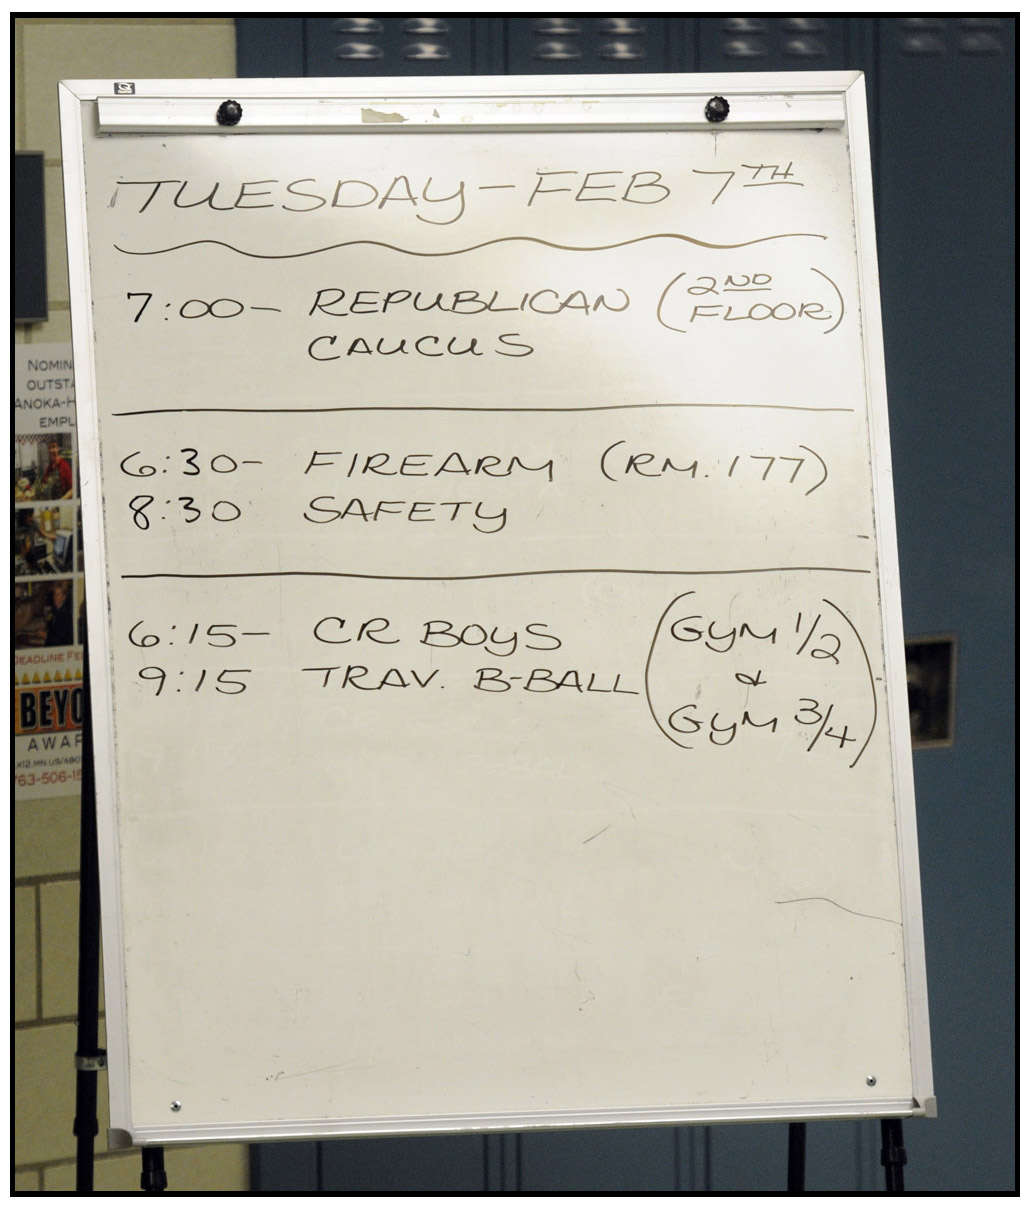 TUESDAY - FEB 7TH
7:00 - REPUBLICAN (2ND FLOOR)
CAUCUS
6:30 - FIREARM (RM. 177)
8:30 SAFETY
6:15 - CR BOYS (GYM 1/2
9:15 TRAV. B-BALL &
GYM 3/4)
NOMIN
OUTSTA
ANOKA-H
EMPL
DEADLINE FE
BEYO
AWAR
K12.MN.US/ABO
763-506-15